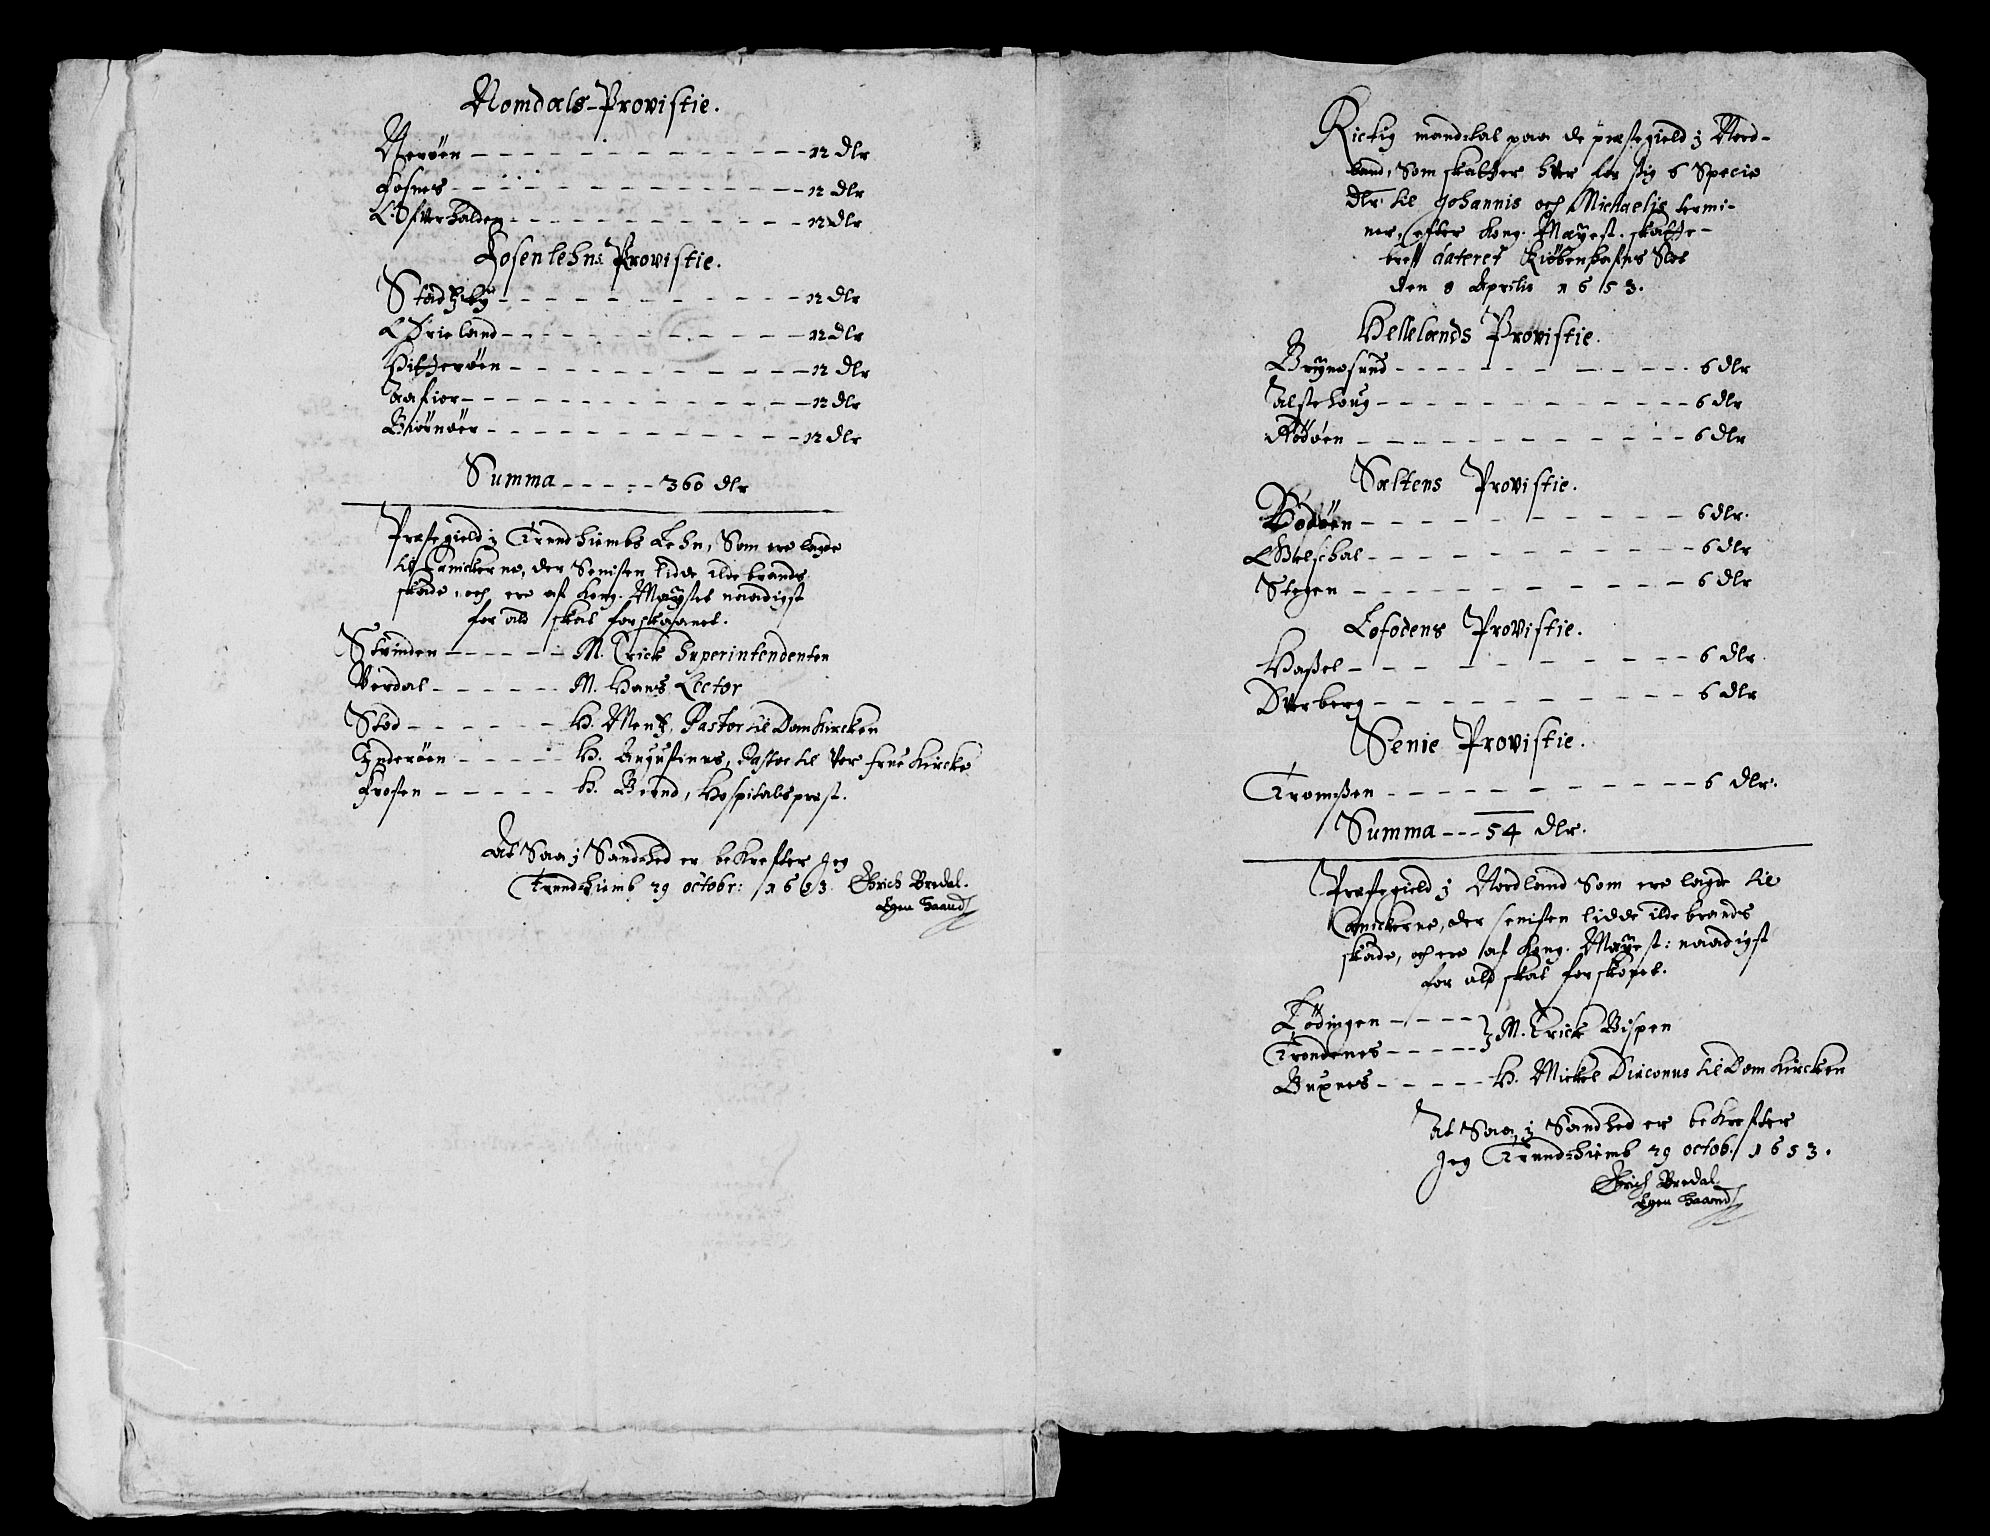 Nomdals-Provistie.
Nerøen - - - - - - - - - 12 dlr
Fosnes - - - - - - - - - 12 dlr
Offverhalden - - - - - - - - - 12 dlr
Fosenlehns Provistie.
Stadzby - - - - - - - - - 12 dlr
Ørieland - - - - - - - - - 12 dlr
Hitterøen - - - - - - - - - 12 dlr
Aafior - - - - - - - - - 12 dlr
Biørnøer - - - - - - - - - 12 dlr
Summa - - - - - 360 dlr
Præstegield j Trundhiembs Lehn, Som ere lagde
til Canickerne, der Senisten lidde ilde brands
skade, och ere af Kong. Maystet naadigst
for ald skat forskaanet.
Strinden - - - - - M. Erick Superintendenten
Verdal - - - - - M. Hans Lector
Stod - - - - - H. Mentz, Pastor til Domkircken
Ynderøen - - - - - H. Augustinus, Pastor til Vor frue Kircke
Frosten - - - - - H. Bernd, Hospitalsprest.
At Saa j Sandhed er bekrefter Jeg
Trundhiemb 29 octobr: 1653. Erich Bredal.
Egen haand
Rictig mandtal paa de præstegield j Nord-
land, Som skatter hver for sig 6 Specie
dlr. til Johannis och Michaelis termi-
ner, efter Kong. Mayest. skatte-
breff dateret Kiøbenhafns Slot
den 8 Aprilis 1653.
Hellelands Provistie.
Brynøsund - - - - - - - - - 6 dlr
Alstehoug - - - - - - - - - 6 dlr
Rødøen - - - - - - - - - 6 dlr
Saltens Provistie.
Bodøen - - - - - - - - - 6 dlr.
Gilschal - - - - - - - - - 6 dlr
Stegen - - - - - - - - - 6 dlr
Lofodens Provistie.
Haßel - - - - - - - - - 6 dlr
Dverberg - - - - - - - - - 6 dlr
Senie Provistie.
Tromßen - - - - - - - - - 6 dlr.
Summa - - - 54 dlr.
Præstegield j Nordland Som ere lagde til
Canickerne, der senisten lidde ilde brands
skade, och ere af Kong. Mayest: naadigst
for ald skat forskonet.
Lødingen - - - - } M. Erick Bispen
Trondenes - - - - -
Buxnes - - - - - H. Mickel Diaconus til Domkircken
At Saa j Sandhed er bekrefter
Jeg Trundhiemb 29 octob. 1653.
Erich Bredal.
Egen haand